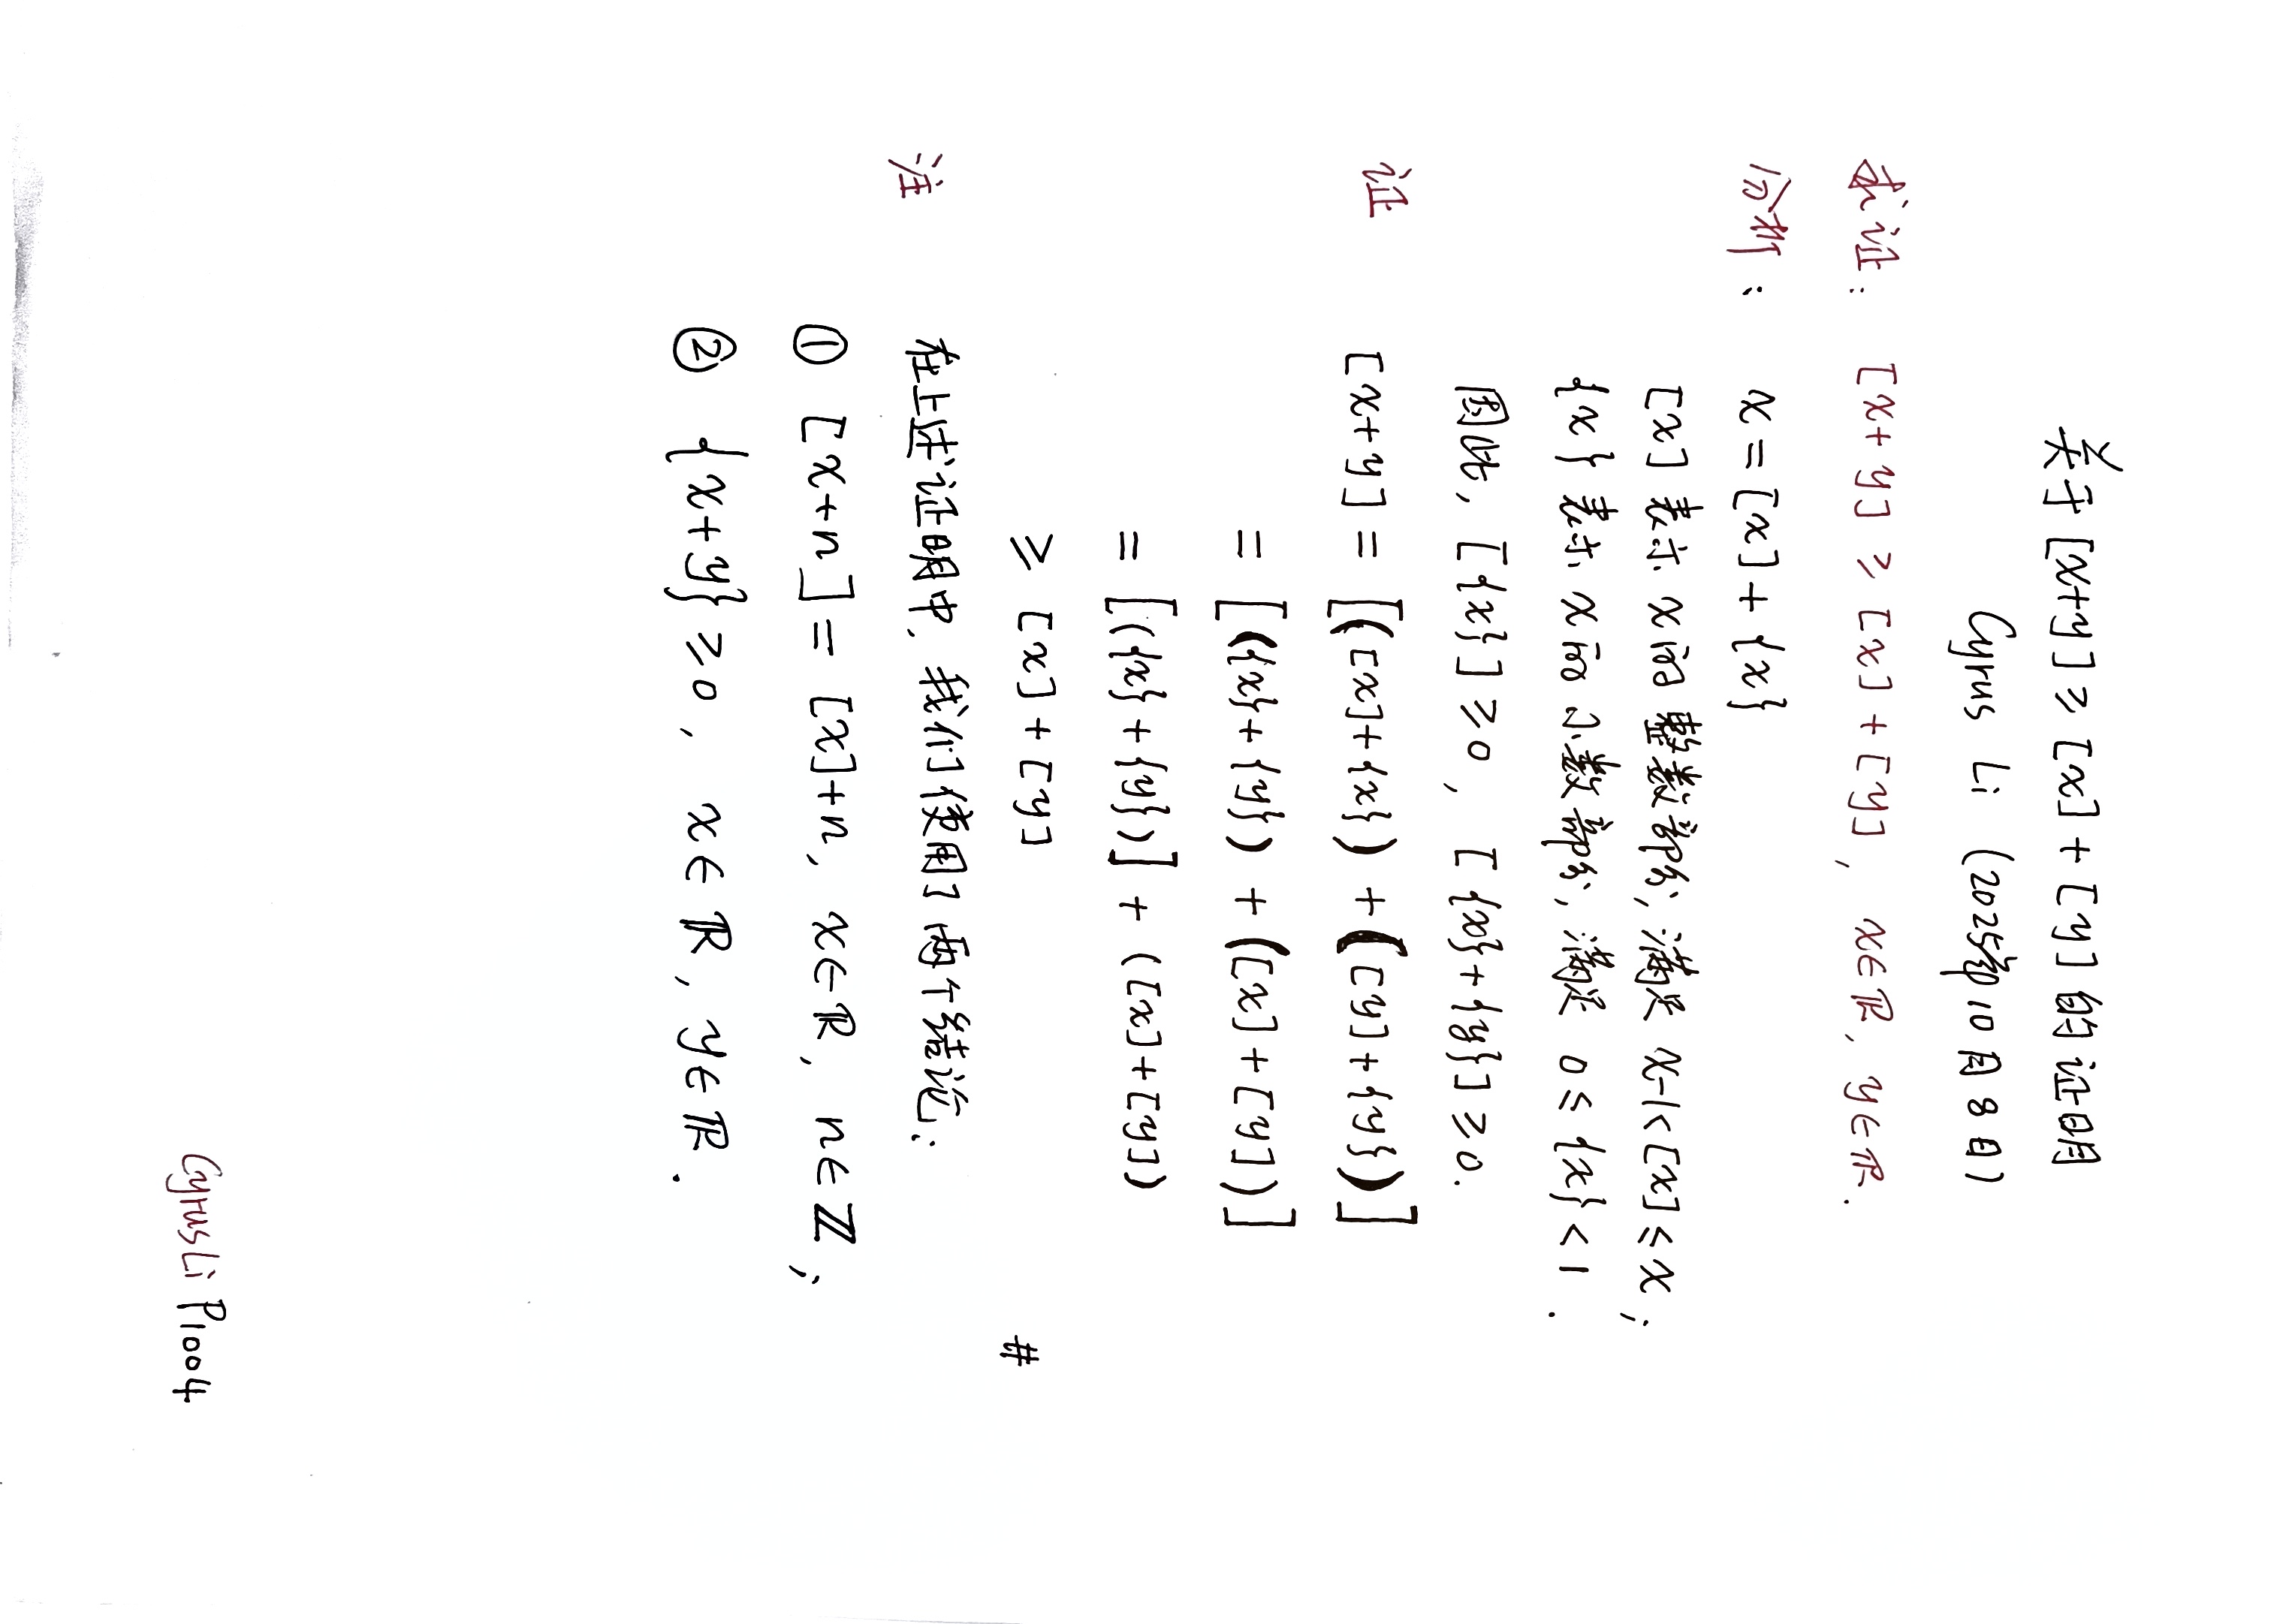 关于[x+y]≥[x]+[y]的证明
Cyrus Li (2025年10月8日)
求证: [x+y]≥[x]+[y], x∈ℝ, y∈ℝ.
分析: x=[x]+{x}
[x]表示x的整数部分,满足 x-1<[x]≤x;
{x}表示x的小数部分,满足 0≤{x}<1.
因此, [{x}]≥0, [{x}+{y}]≥0.
证 [x+y]=[([x]+{x})+([y]+{y})]
=[({x}+{y})+([x]+[y])]
=[({x}+{y})]+([x]+[y])
≥[x]+[y] #
注 在上述证明中,我们使用了两个结论:
① [x+n]=[x]+n, x∈ℝ, n∈ℤ;
② {x+y}≥0, x∈ℝ, y∈ℝ.
CyrusLi P1004